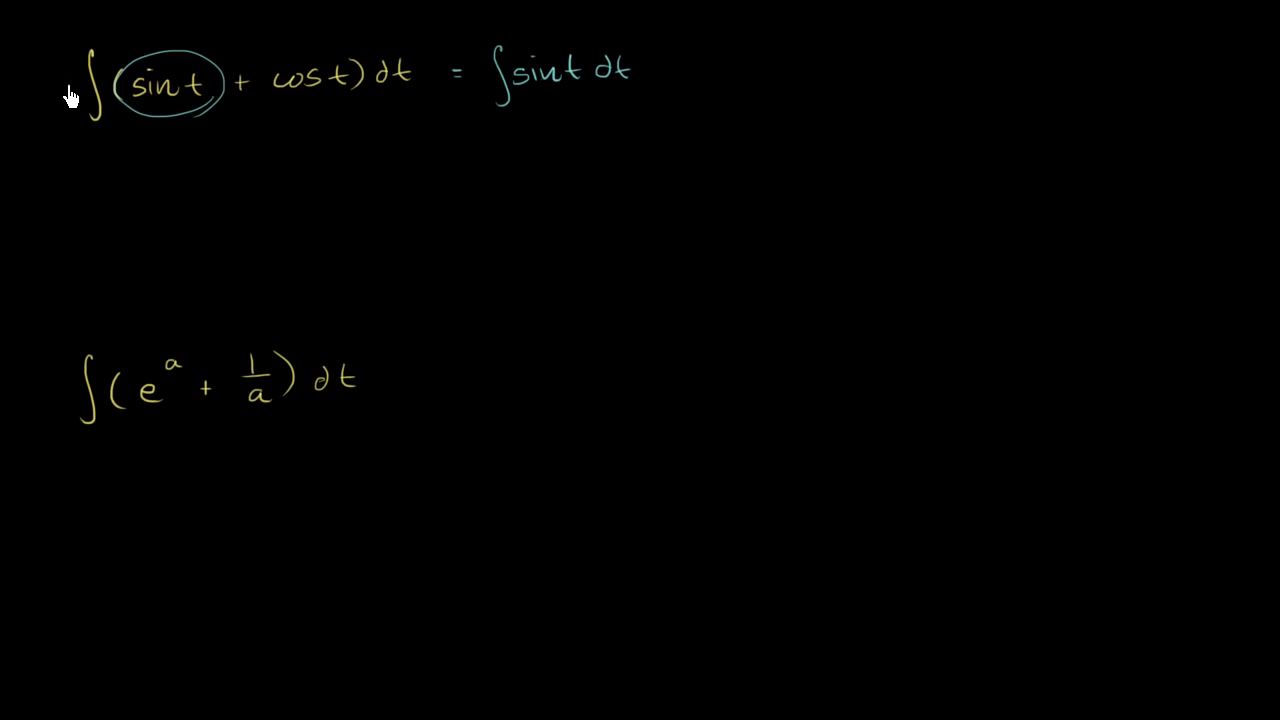 ∫(sin t + cos t) dt = ∫sin t dt
∫(e^a + 1/a) dt